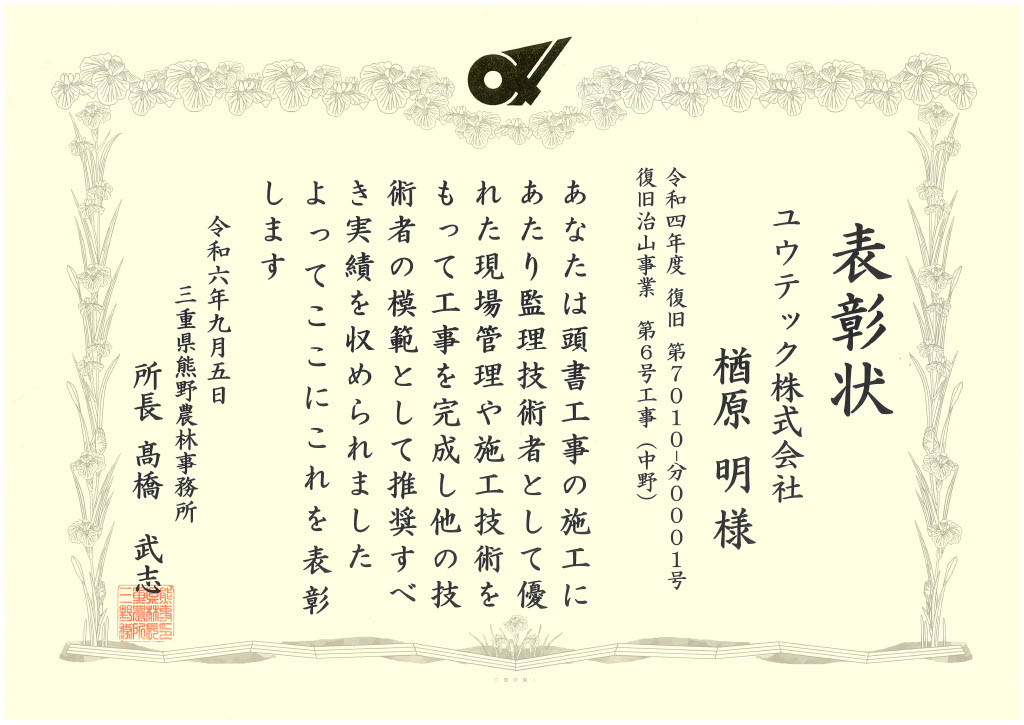 表彰状
ユウテック株式会社
楢原 明 様
令和四年度 復旧 第7010-分0001号
復旧治山事業 第6号工事(中野)
あなたは頭書工事の施工に
あたり監理技術者として優
れた現場管理や施工技術を
もって工事を完成し他の技
術者の模範として推奨すべ
き実績を収められました
よってここにこれを表彰
します
令和六年九月五日
三重県熊野農林事務所
所長 髙橋 武志